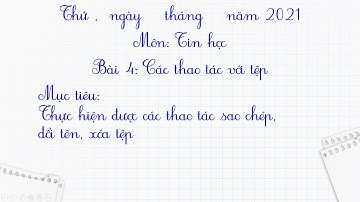 Thứ , ngày tháng năm 2021
Môn: Tin học
Bài 4: Các thao tác với tệp
Mục tiêu:
Thực hiện được các thao tác sao chép,
đổi tên, xóa tệp